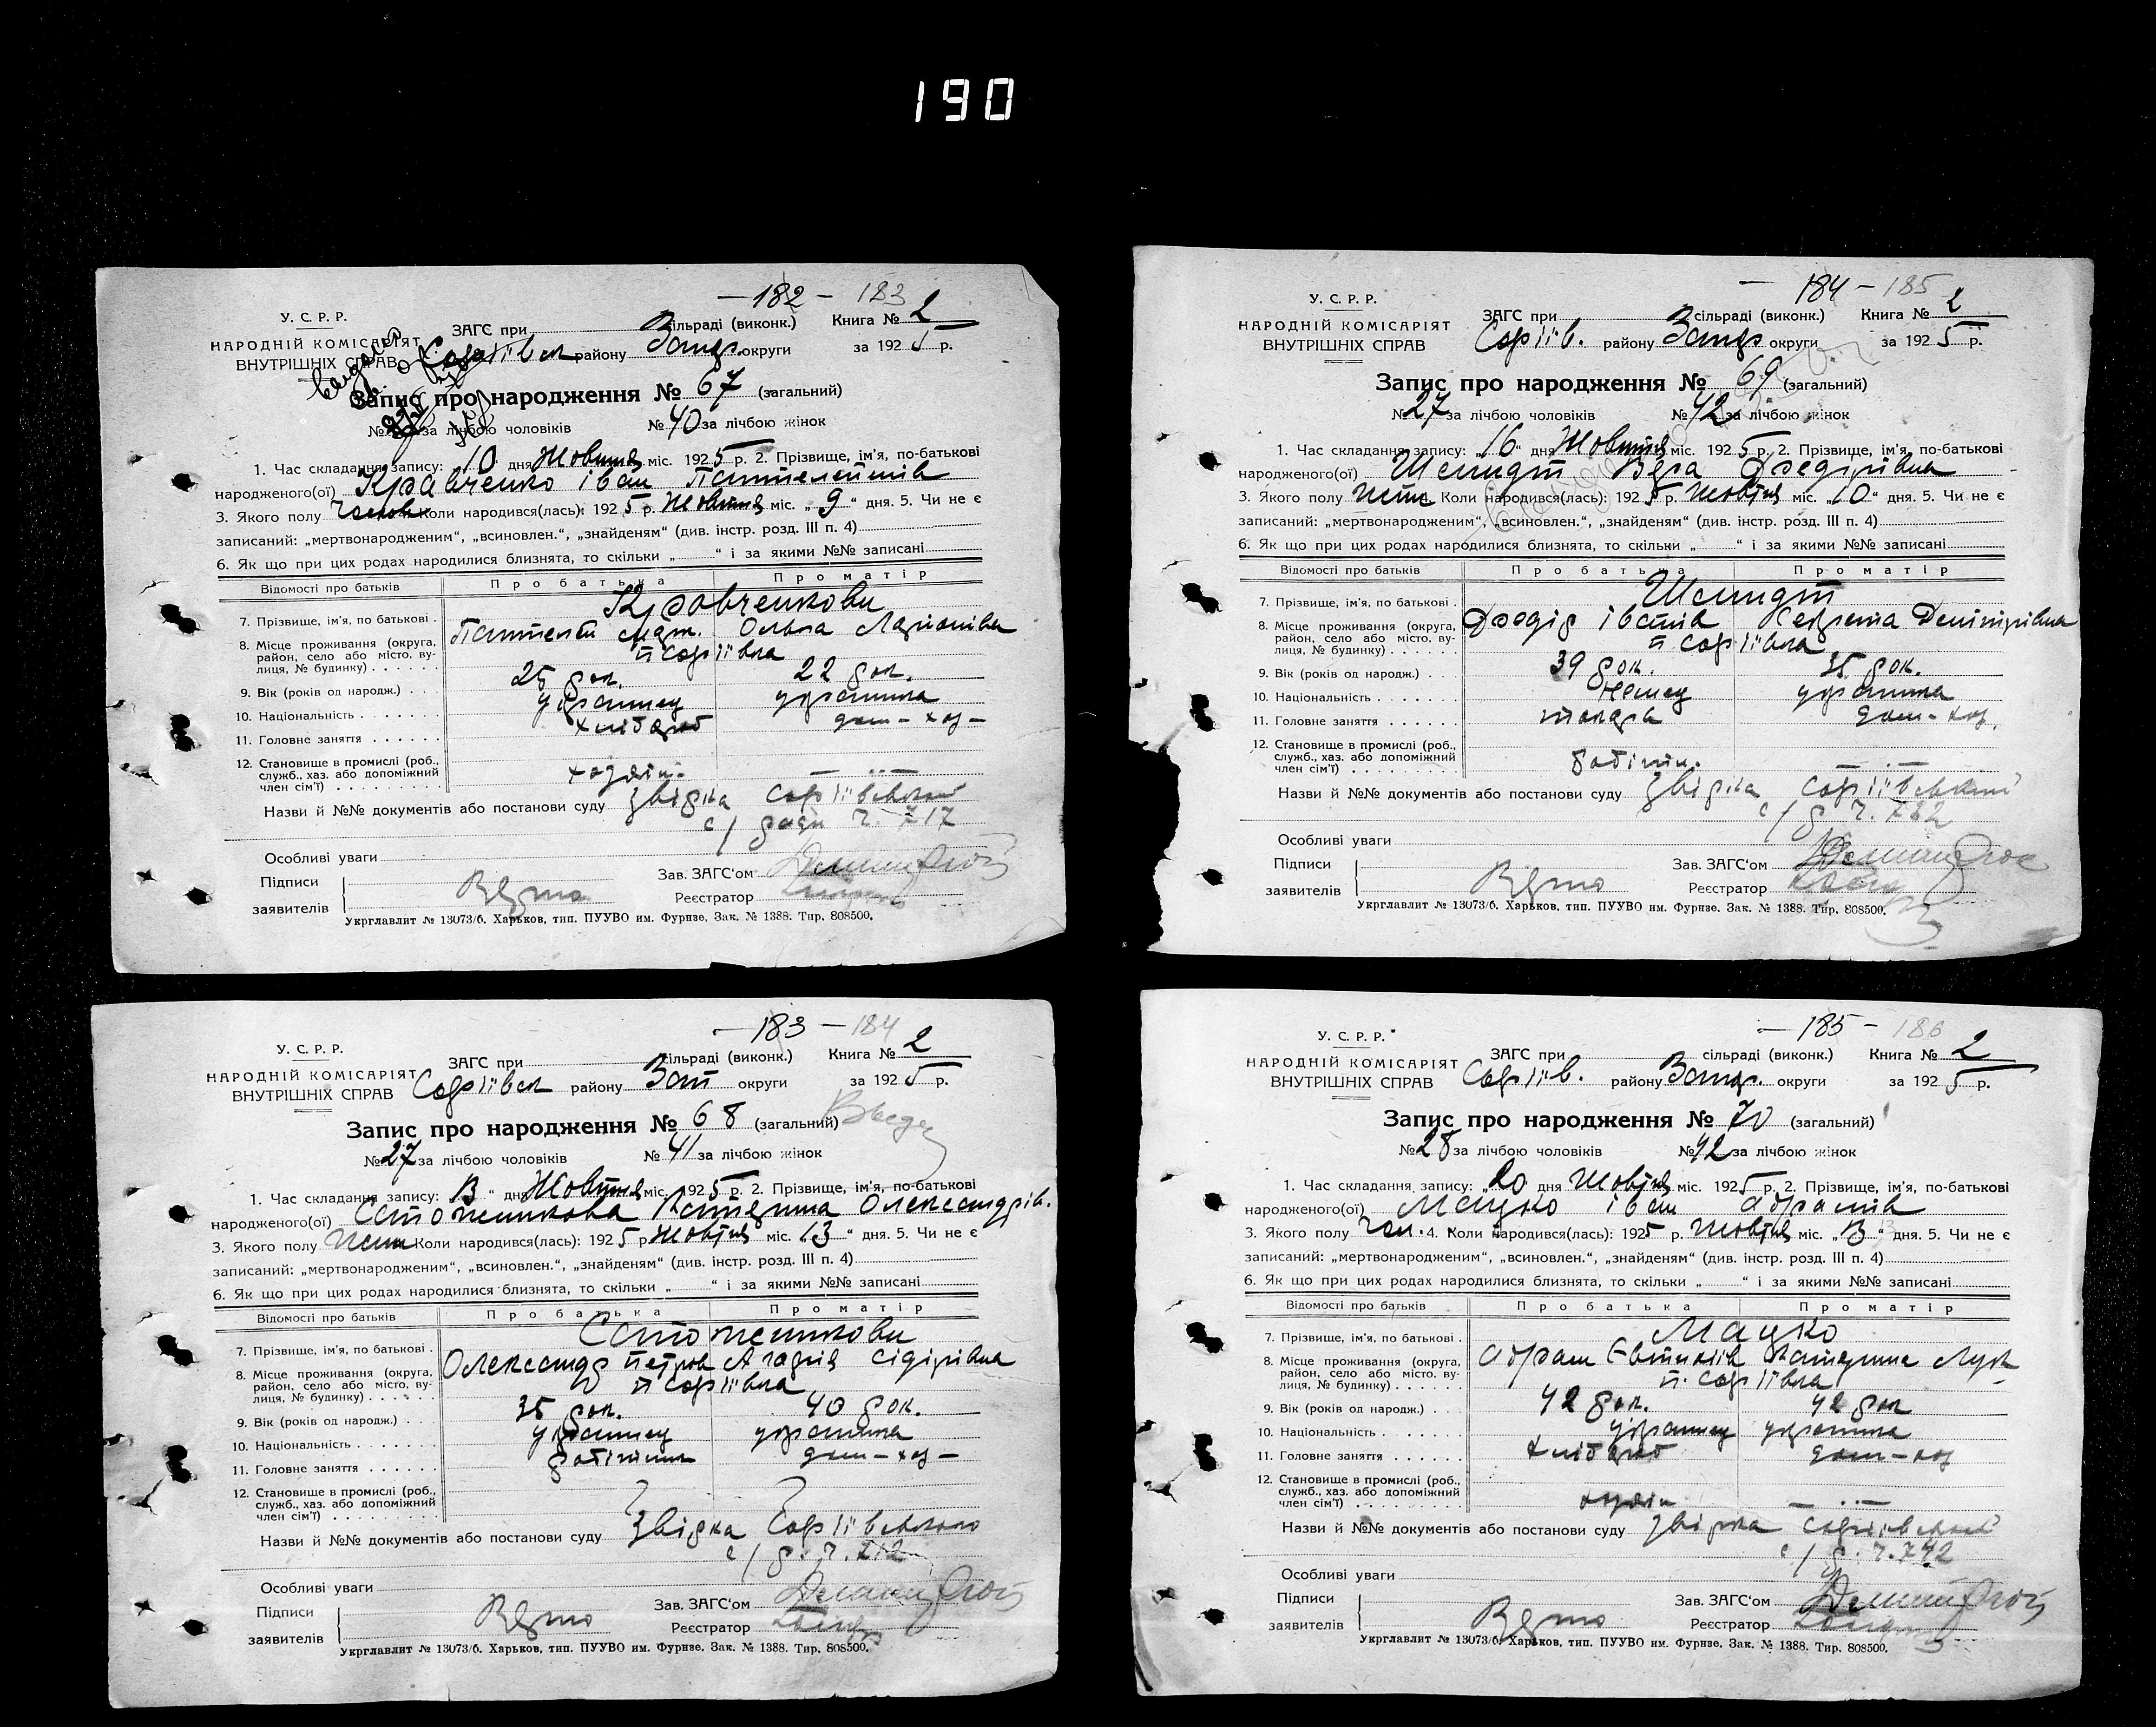 190
— 182 — 183
У. С. Р. Р.
НАРОДНІЙ КОМІСАРІЯТ
ВНУТРІШНІХ СПРАВ
ЗАГС при сільраді (виконк.) Книга № 2
району Запор. округи за 1925 р.
Запис про народження № 67 (загальний)
№ за лічбою чоловіків № 40 за лічбою жінок
1. Час складання запису: 10 дня Жовтня міс. 1925 р. 2. Прізвище, ім'я, по-батькові
народженого(ої) Кравченко Іван
3. Якого полу Коли народився(лась): 1925 р. Жовтня міс. „9“ дня. 5. Чи не є
записаний: „мертвонародженим“, „всиновлен.“, „знайденям“ (див. інстр. розд. III п. 4)
6. Як що при цих родах народилися близнята, то скільки „ “ і за якими №№ записані
Відомості про батьків Про батька Про матір
7. Прізвище, ім'я, по батькові . Кравченкови
Ольга
8. Місце проживання (округа,
район, село або місто, ву-
лиця, № будинку) . . . . .
9. Вік (років од народж.) . . . 25 рок. 22 рок.
10. Національність . . . . . . . українец українка
11. Головне заняття . . . . . . хлібороб дом-хоз-
12. Становище в промислі (роб.,
служб., хаз. або допоміжний
член сім'ї) . . . . . . . . . хазяін.
Назви й №№ документів або постанови суду
с/ ради ч. 717
Особливі уваги
Підписи Зав. ЗАГС'ом
заявителів Реєстратор
Укрглавлит № 13073/б. Харьков, тип. ПУУВО им. Фурнзе. Зак. № 1388. Тир. 808500.
— 183 — 184
У. С. Р. Р.
НАРОДНІЙ КОМІСАРІЯТ
ВНУТРІШНІХ СПРАВ
ЗАГС при сільраді (виконк.) Книга № 2
району Зап округи за 1925 р.
Запис про народження № 68 (загальний)
№ 27 за лічбою чоловіків № 41 за лічбою жінок
1. Час складання запису: „13“ дня Жовтня міс. 1925 р. 2. Прізвище, ім'я, по-батькові
народженого(ої) Катерина Олександрів.
3. Якого полу Жін Коли народився(лась): 1925 р. Жовтня міс. „13“ дня. 5. Чи не є
записаний: „мертвонародженим“, „всиновлен.“, „знайденям“ (див. інстр. розд. III п. 4)
6. Як що при цих родах народилися близнята, то скільки „ “ і за якими №№ записані
Відомості про батьків Про батька Про матір
7. Прізвище, ім'я, по батькові .
Олександр Петров Сідірівна
8. Місце проживання (округа,
район, село або місто, ву-
лиця, № будинку) . . . . .
9. Вік (років од народж.) . . . 35 рок. 40 рок.
10. Національність . . . . . . . українец українка
11. Головне заняття . . . . . . робітник дом-хоз-
12. Становище в промислі (роб.,
служб., хаз. або допоміжний
член сім'ї) . . . . . . . . .
Назви й №№ документів або постанови суду
с/р. ч.
Особливі уваги
Підписи Зав. ЗАГС'ом
заявителів Реєстратор
Укрглавлит № 13073/б. Харьков, тип. ПУУВО им. Фурнзе. Зак. № 1388. Тир. 808500.
— 184 — 185
У. С. Р. Р.
НАРОДНІЙ КОМІСАРІЯТ
ВНУТРІШНІХ СПРАВ
ЗАГС при сільраді (виконк.) Книга № 2
району Запор. округи за 1925 р.
Запис про народження № 69 (загальний)
№ 27 за лічбою чоловіків № 42 за лічбою жінок
1. Час складання запису: „16“ дня Жовтня міс. 1925 р. 2. Прізвище, ім'я, по-батькові
народженого(ої) Шмидт Вера Федірівна
3. Якого полу Жін Коли народився(лась): 1925 р. Жовтня міс. „10“ дня. 5. Чи не є
записаний: „мертвонародженим“, „всиновлен.“, „знайденям“ (див. інстр. розд. III п. 4)
6. Як що при цих родах народилися близнята, то скільки „ “ і за якими №№ записані
Відомості про батьків Про батька Про матір
7. Прізвище, ім'я, по батькові . Шмидт
Федір Іванів
8. Місце проживання (округа,
район, село або місто, ву-
лиця, № будинку) . . . . .
9. Вік (років од народж.) . . . 39 рок. 35 рок.
10. Національність . . . . . . . немец українка
11. Головне заняття . . . . . . токарь дом-хоз.
12. Становище в промислі (роб.,
служб., хаз. або допоміжний
член сім'ї) . . . . . . . . . робітн.
Назви й №№ документів або постанови суду
с/р ч. 732
Особливі уваги
Підписи Зав. ЗАГС'ом
заявителів Реєстратор
Укрглавлит № 13073/б. Харьков, тип. ПУУВО им. Фурнзе. Зак. № 1388. Тир. 808500.
— 185 — 186
У. С. Р. Р.
НАРОДНІЙ КОМІСАРІЯТ
ВНУТРІШНІХ СПРАВ
ЗАГС при сільраді (виконк.) Книга № 2
району Запор. округи за 1925 р.
Запис про народження № 70 (загальний)
№ 28 за лічбою чоловіків № 42 за лічбою жінок
1. Час складання запису: „20 дня Жовтня міс. 1925 р. 2. Прізвище, ім'я, по-батькові
народженого(ої) Мацко Іван Абрамів
3. Якого полу Чол. 4. Коли народився(лась): 1925 р. Жовтня міс. „13“ дня. 5. Чи не є
записаний: „мертвонародженим“, „всиновлен.“, „знайденям“ (див. інстр. розд. III п. 4)
6. Як що при цих родах народилися близнята, то скільки „ “ і за якими №№ записані
Відомості про батьків Про батька Про матір
7. Прізвище, ім'я, по батькові . Мацко
Абрам Катерина
8. Місце проживання (округа,
район, село або місто, ву-
лиця, № будинку) . . . . .
9. Вік (років од народж.) . . . 42 рок. 42 рок
10. Національність . . . . . . . українец українка
11. Головне заняття . . . . . . хлібороб дом-хоз
12. Становище в промислі (роб.,
служб., хаз. або допоміжний
член сім'ї) . . . . . . . . . хазяін
Назви й №№ документів або постанови суду
с/р. ч. 742
Особливі уваги
Підписи Зав. ЗАГС'ом
заявителів Реєстратор
Укрглавлит № 13073/б. Харьков, тип. ПУУВО им. Фурнзе. Зак. № 1388. Тир. 808500.